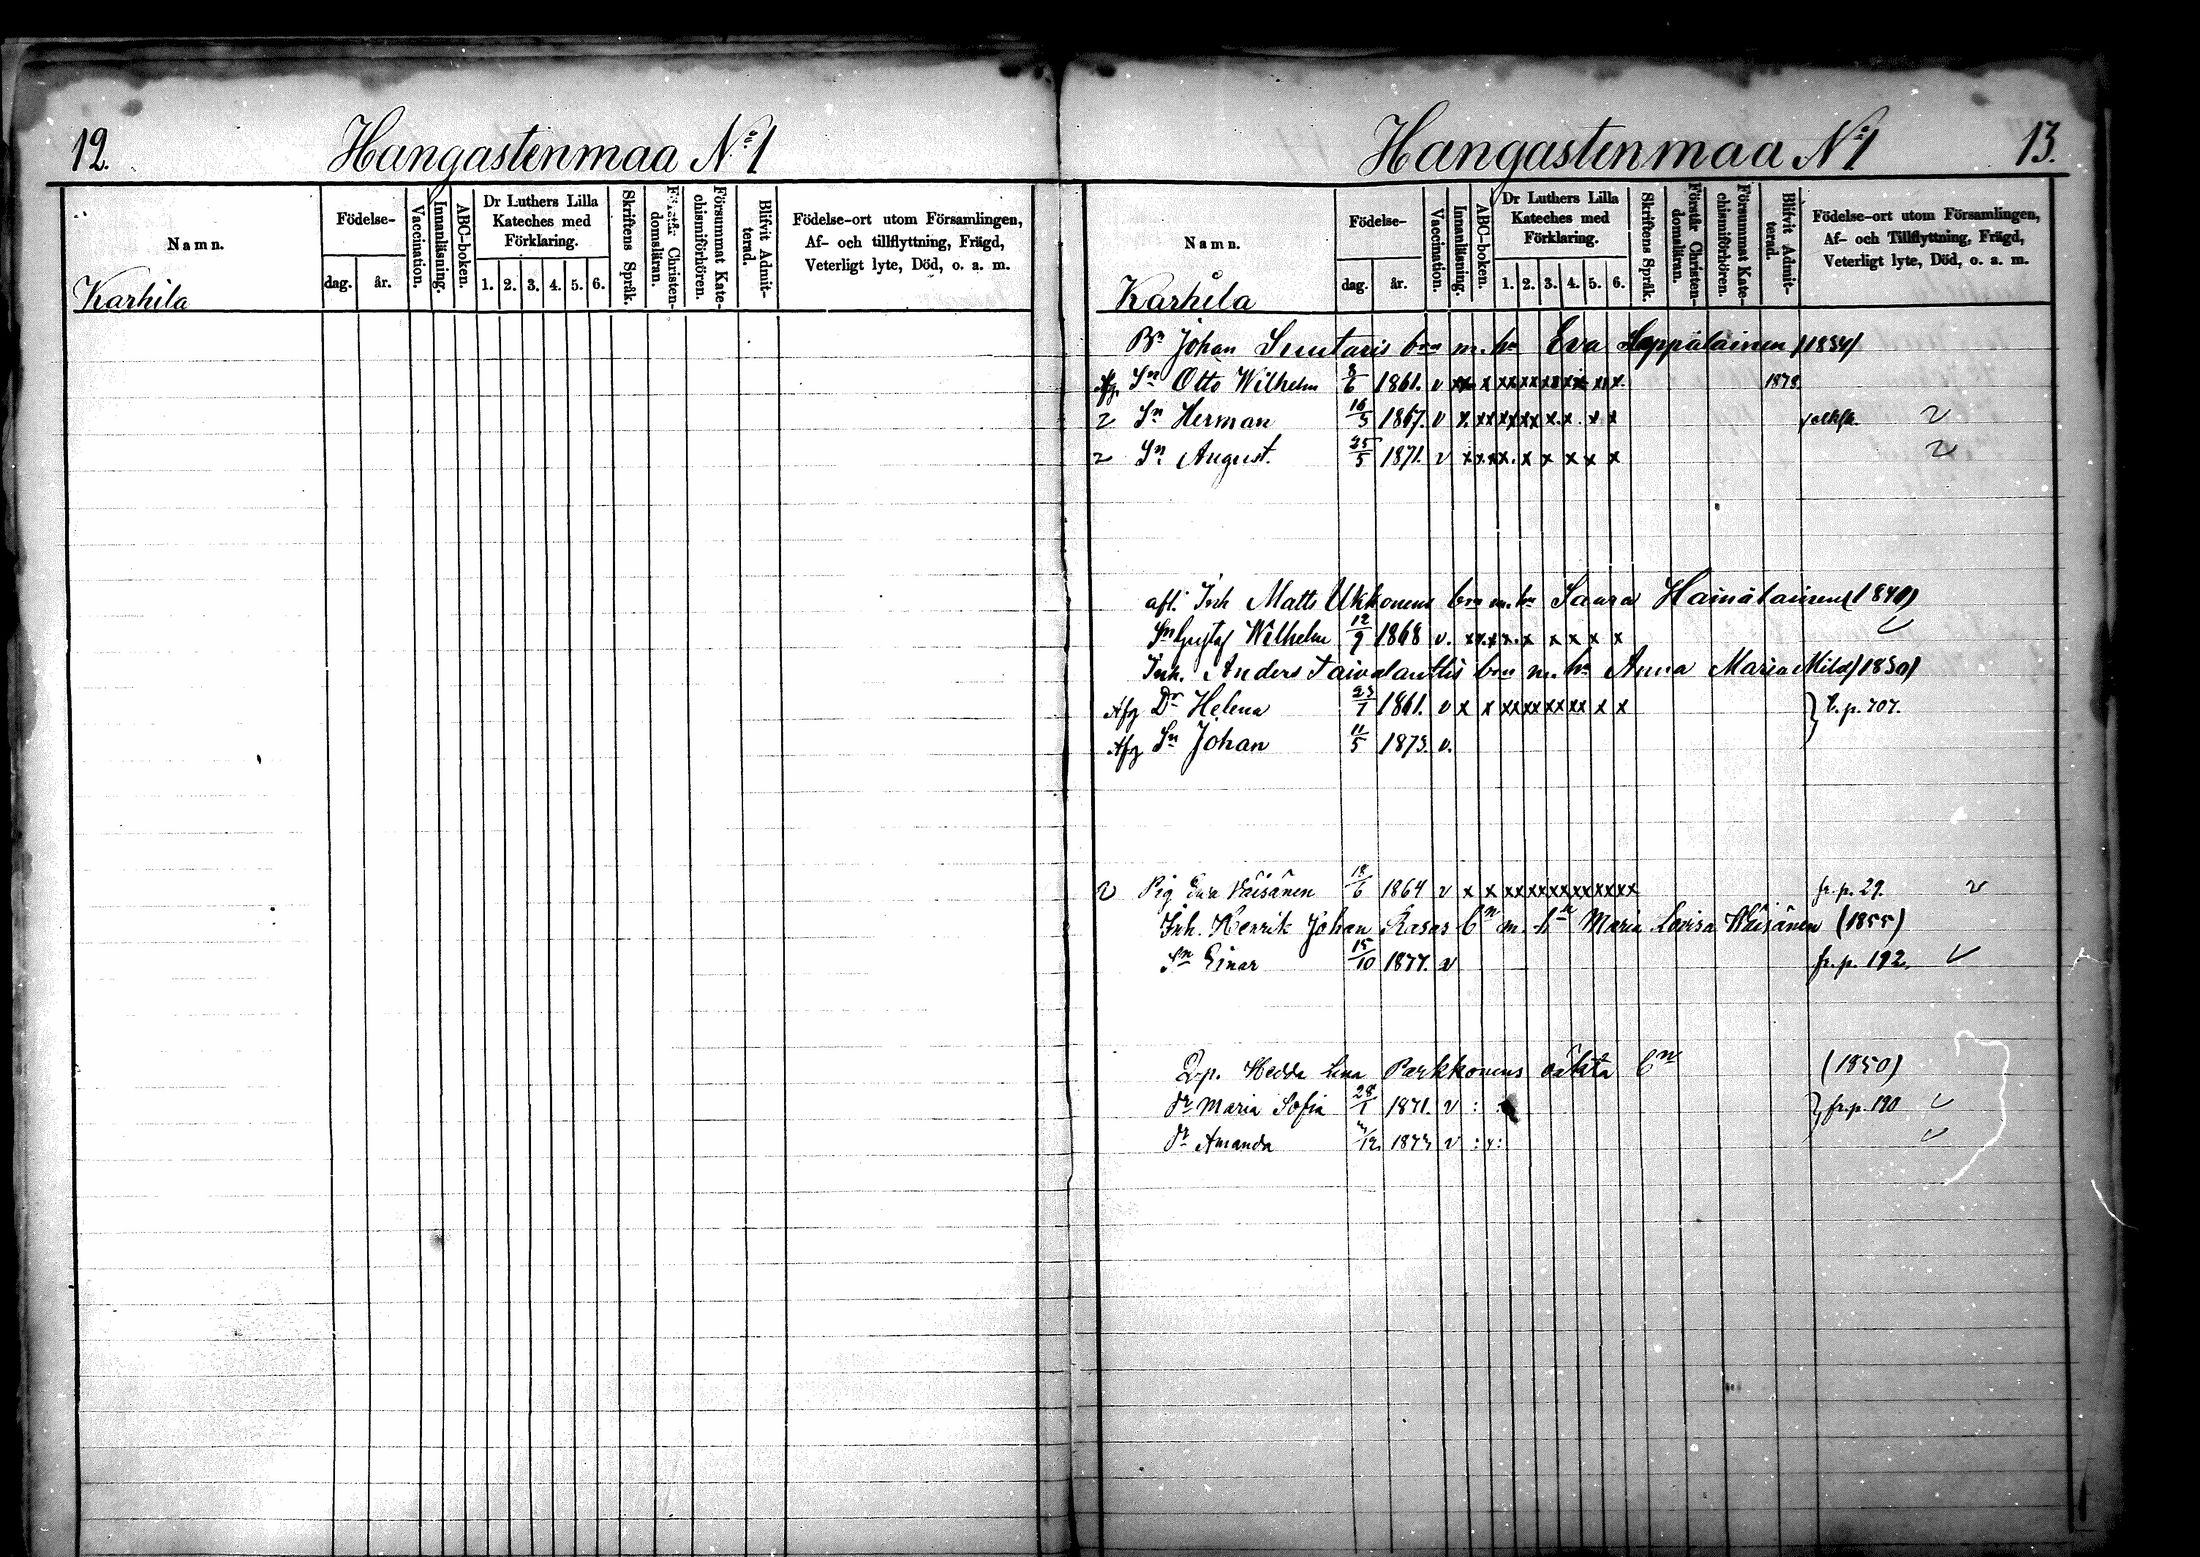 12. Hangastenmaa No 1
Namn.
Födelse-
dag. år.
Vaccination.
Innanläsning.
ABC-boken.
Dr Luthers Lilla
Kateches med
Förklaring.
1. 2. 3. 4. 5. 6.
Skriftens Språk.
Förstår Christen-
domsläran.
Försummat Kate-
chismiförhören.
Blifvit Admit-
terad.
Födelse-ort utom Församlingen,
Af- och tillflyttning, Frägd,
Veterligt lyte, Död, o. a. m.
Karhila
Hangastenmaa No 1 13.
Namn.
Födelse-
dag. år.
Vaccination.
Innanläsning.
ABC-boken.
Dr Luthers Lilla
Kateches med
Förklaring.
1. 2. 3. 4. 5. 6.
Skriftens Språk.
Förstår Christen-
domsläran.
Försummat Kate-
chismiförhören.
Blifvit Admit-
terad.
Födelse-ort utom Församlingen,
Af- och Tillflyttning, Frägd,
Veterligt lyte, Död, o. a. m.
Karhila
Bn Johan bn m. hn Eva Seppäläinen (1834)
Afg. Sn Otto Wilhelm 8/6 1861. v xx x xx xx xx xx xx x. 1878.
v Sn Herman 16/5 1867. v x. xx xx xx x. x. x x v
v Sn August. 25/5 1871. v x x x x. x x x x x v
afl. Inh Matts Ukkonens bn m. hn Laura Hämäläinen (1840)
Sn Gustaf Wilhelm 12/9 1868 v. x x. x x. x x x x x v
Inh. Anders Taivalanttis bn m. hn Anna Maria Mild (1830)
Afg Dr Helena 23/1 1861. v x x xx xx xx xx x x } t. p. 707.
Afg Sn Johan 11/5 1873. v.
v Pig Eva Väisänen 18/6 1864 v x x xxxxxxxxxxxx fr. p. 29. v
Inh. Henrik Johan Rasas bn m. hn Maria Lovisa Väisänen (1855)
Sn Einar 15/10 1877. v fr. p. 192. v
Qvp. Hedda Lena Parkkonens oäkta bn (1850)
dr Maria Sofia 28/1 1871. v : } fr. p. 190 v
dr Amanda 1873 v : x: v